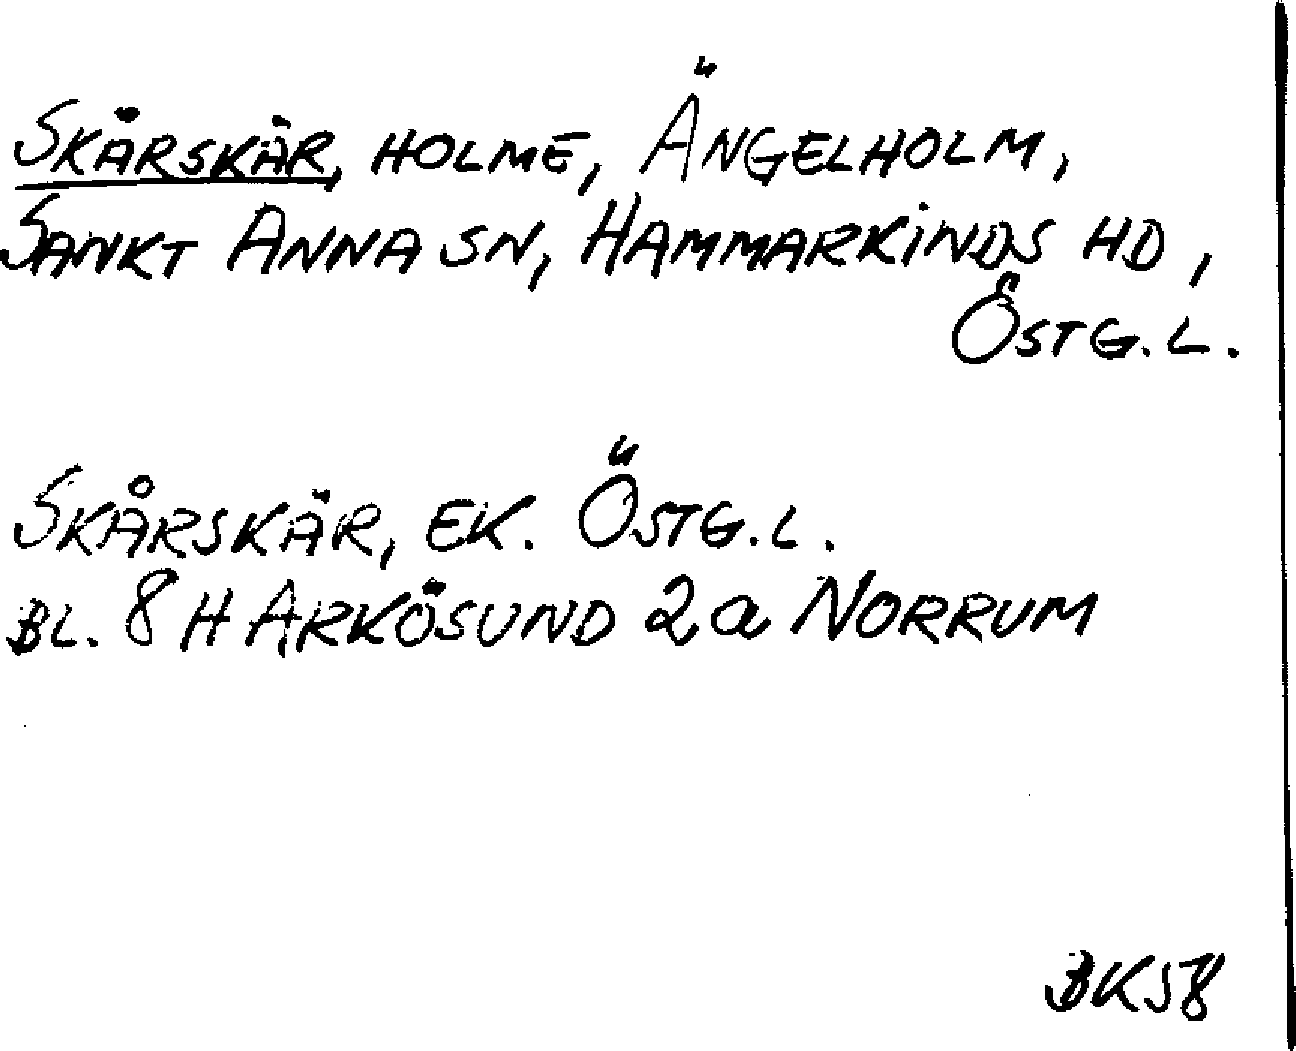 SKÅRSKÄR, HOLME, ÄNGELHOLM,
SANKT ANNA SN, HAMMARKINDS HD,
ÖSTG.L.
SKÅRSKÄR, EK. ÖSTG.L.
BL. 8 H ARKÖSUND 2a NORRUM
BK58